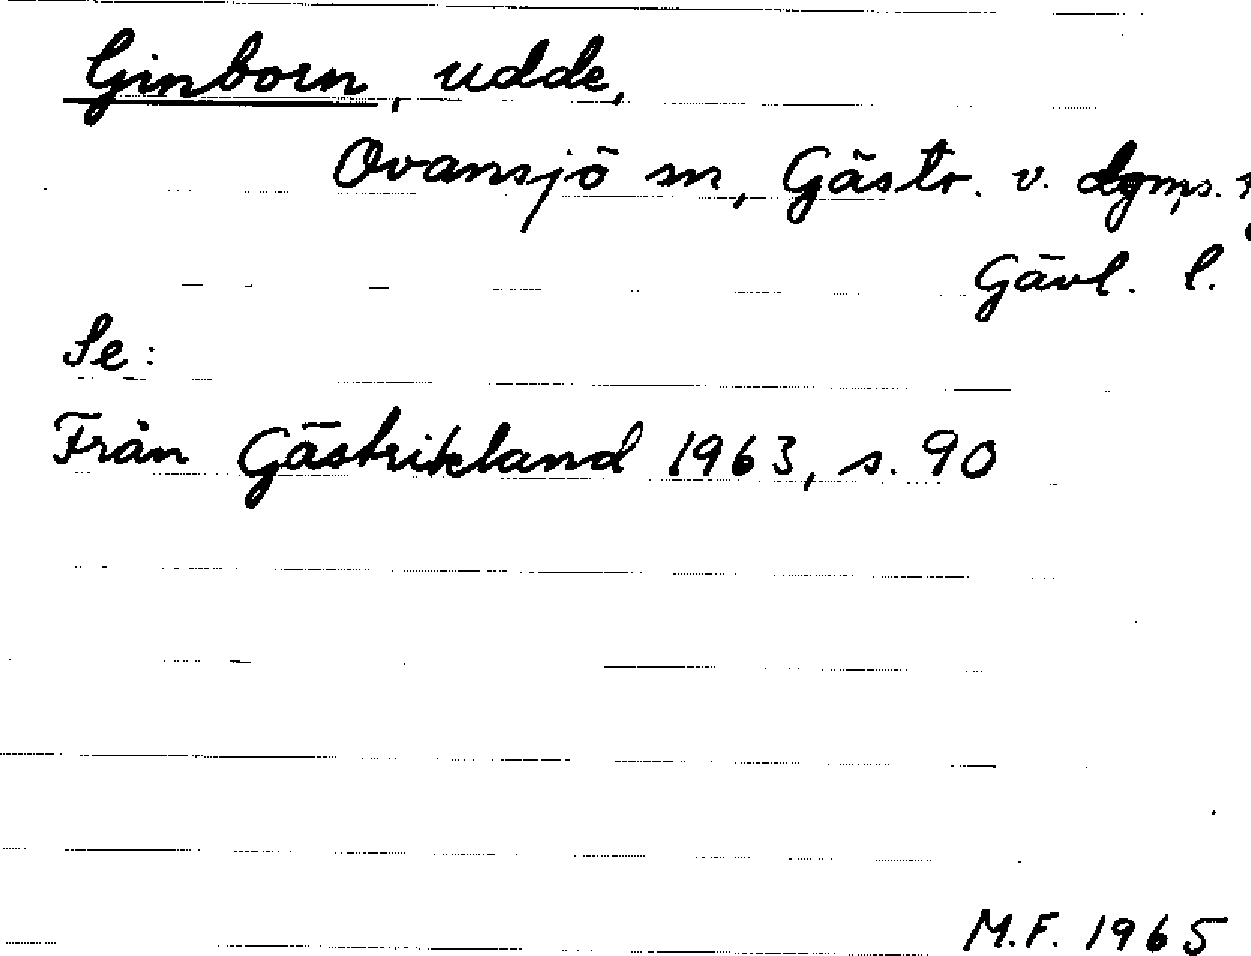 Ginborn, udde,
Ovansjö sn, Gästr. v. dgmps.
Gävl. l.
Se:
Från Gästrikland 1963, s. 90
M.F. 1965